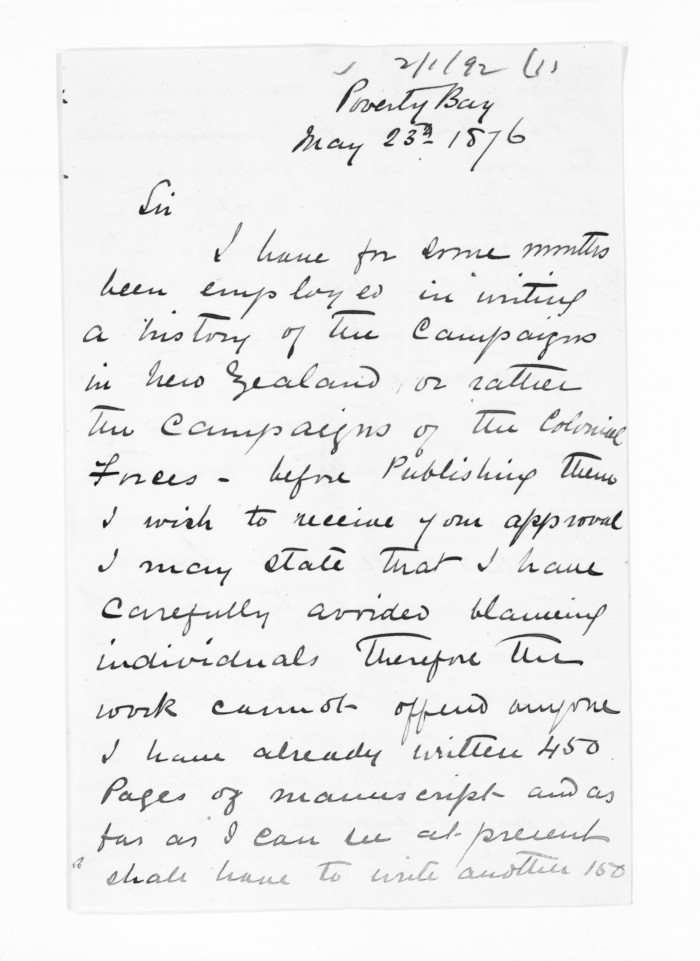 2/1/92 (1)
Poverty Bay
May 23rd 1876
Sir
I have for some months
been employed in writing
a history of the Campaigns
in New Zealand, or rather
the Campaigns of the Colonial
Forces - before Publishing them
I wish to receive your approval
I may state that I have
Carefully avoided blameing
individuals therefore the
work cannot offend anyone
I have already written 450
Pages of manuscript and as
far as I can see at present
shall have to write another 150